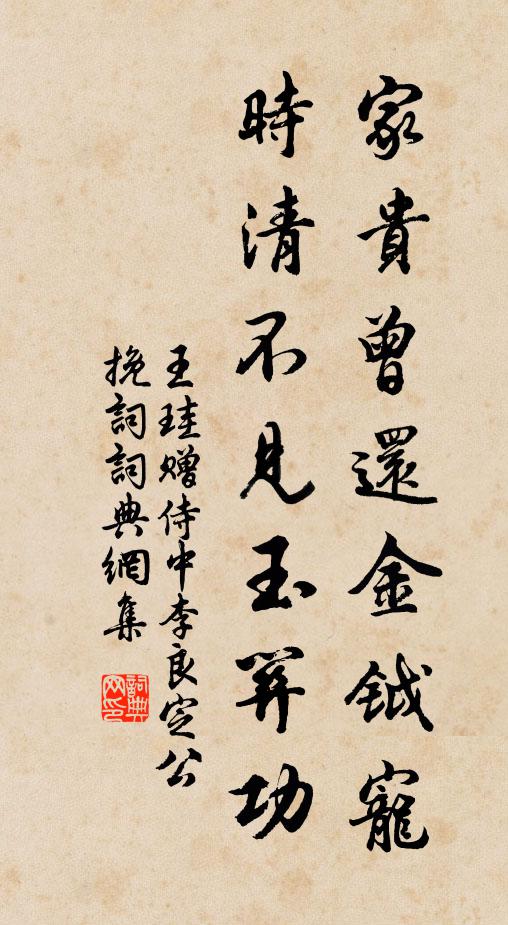 家貴曾還金鉞寵
時清不見玉筭功
王珪贈侍中李良定公
挽詞詞典網集
詞典
网印